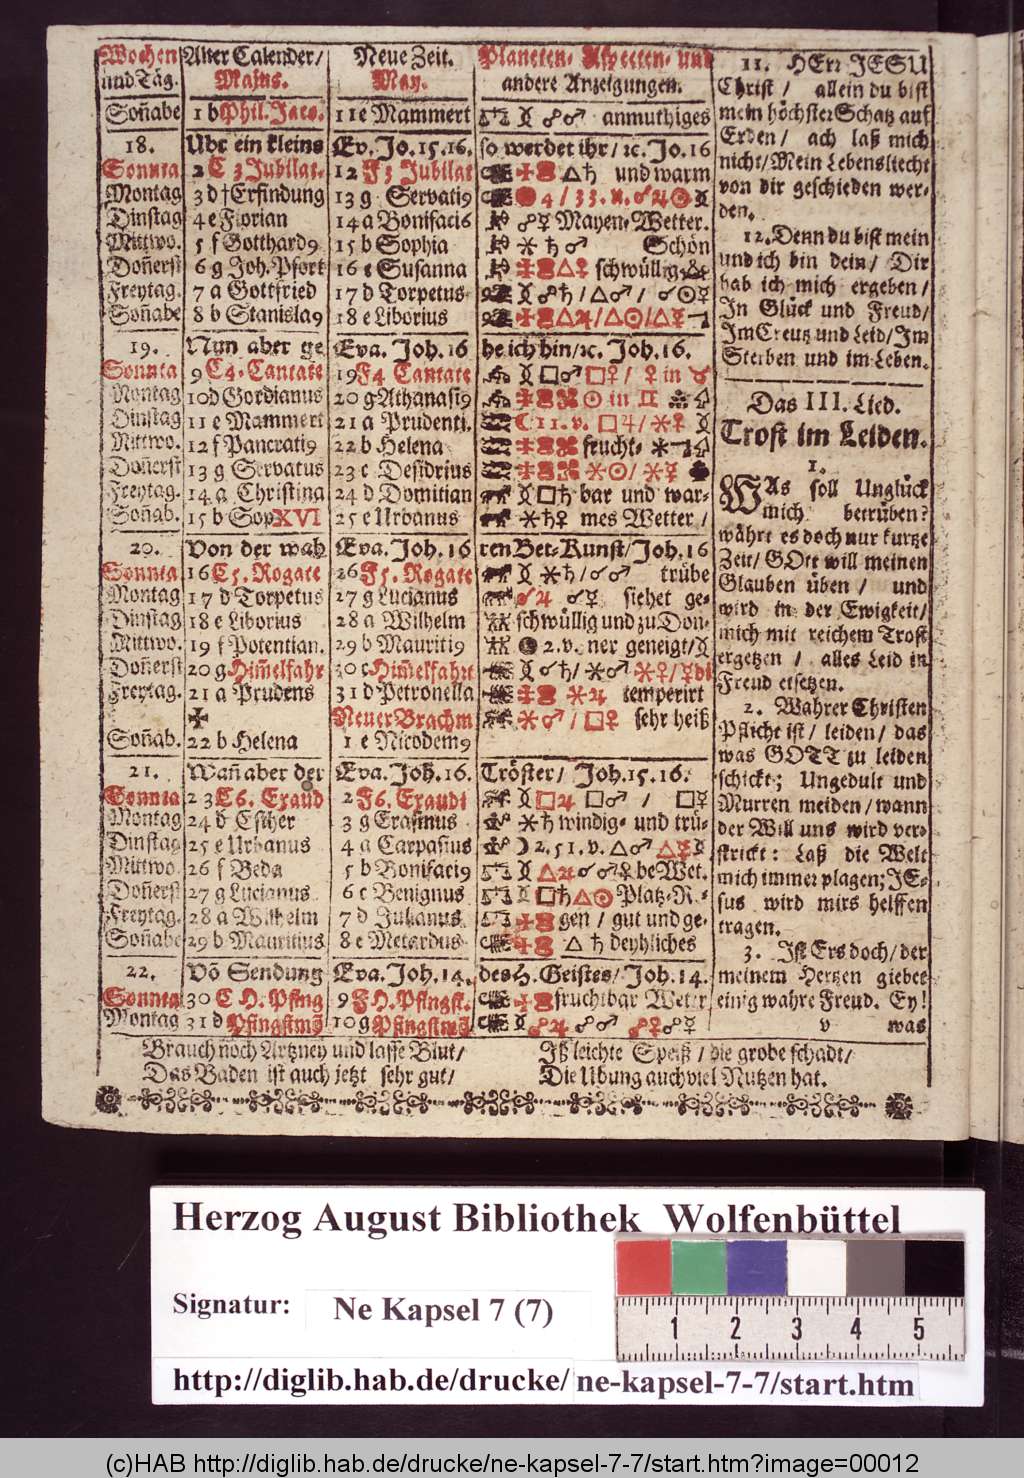 Wochen und Täg. Alter Calender/ Majus. Neue Zeit. May. Planeten- Aspecten- und andere Anzeigungen.
Soñabe 1 b Phil. Jaco. 11 e Mammert ☍♂ anmuthiges
18. Ubr ein kleins Ev. Jo. 15. 16. so werdet ihr/ ꝛc. Jo. 16
Sonnta 2 C 3 Jubilat. 12 F 3 Jubilat △♄ und warm
Montag 3 d †Erfindung 13 g Servati9 4/33. n. ☌♃☉
Dinstag 4 e Florian 14 a Bonifaci6 ☍☿ Mayen-Wetter.
Mittwo. 5 f Gotthard9 15 b Sophia ⚹ ♄ ♂ Schön
Doñerst 6 g Joh. Pfort 16 c Susanna △♀ schwüllig
Freytag. 7 a Gottfried 17 d Torpetus ☍♄/△♂/ ☌☉☿
Soñabe 8 b Stanisla9 18 e Liborius △♃/△☉/△☿
19. Nun aber ge Eva. Joh. 16 he ich hin/ꝛc. Joh. 16.
Sonnta 9 C 4. Cantate 19 F 4 Cantate □♂ □♀/ ♀ in ♉
Montag 10 d Gordianus 20 g Athanasi9 ☉ in ♊
Dinstag 11 e Mammert 21 a Prudenti. ☾ 11. v. □♃/⚹♀
Mittwo. 12 f Pancrati9 22 b Helena frucht-
Doñerst 13 g Servatus 23 c Desidrius ⚹☉/⚹☿
Freytag. 14 a Christina 24 d Domitian □♄ bar und war-
Soñab. 15 b Sop XVI 25 e Urbanus ⚹♄♀ mes Wetter/
20. Von der wah Eva. Joh. 16 ren Bet-Kunst/Joh. 16
Sonnta 16 C 5. Rogate 26 F 5. Rogate ⚹♄/☌♂ trübe
Montag 17 d Torpetus 27 g Lucianus ☌♃ ☌☿ siehet ge-
Dinstag 18 e Liborius 28 a Wilhelm schwüllig und zu Don-
Mittwo. 19 f Potentian. 29 b Mauriti9 2. v. ner geneigt/
Doñerst 20 g Him̃elfahr 30 c Him̃elfahrt ☌♄/⚹♂ ⚹♀/☿di
Freytag. 21 a Prudens 31 d Petronella ⚹♃ temperirt
✠ Neuer Brachm ⚹♂/□♀ sehr heiß
Soñab. 22 b Helena 1 e Nicodem9
21. Wañ aber der Eva. Joh. 16. Tröster/ Joh. 15. 16.
Sonnta 23 C 6. Exaud 2 F 6. Exaudi □♃ □♂ / □☿
Montag 24 d Esther 3 g Erasmus ⚹♄ windig- und trü-
Dinstag 25 e Urbanus 4 a Carpasius ☽ 2. 51. v. △♂ △☿
Mittwo. 26 f Beda 5 b Bonifaci9 △♃ ☌♂♀ be Wet.
Doñerst 27 g Lucianus 6 c Benignus □♄△☉ Platz-R.-
Freytag. 28 a Wilhelm 7 d Julianus gen/ gut und ge-
Soñabe 29 b Mauritius 8 e Metardus △ ♄ deyhliches
22. Võ Sendung Eva. Joh. 14. des H. Geistes/ Joh. 14.
Sonnta 30 C H. Pfing 9 F H. Pfingst. fruchtbar Weter
Montag 31 d Pfingstmõ 10 g Pfingstmõ ☍♃ ☍♂ ☍♀☍☿
Brauch noch Artzney und lasse Blut/
Das Baden ist auch jetzt sehr gut/
Iß leichte Speiß/ die grobe schadt/
Die Ubung auch viel Nutzen hat.
11. HErr JESU
Christ/ allein du bist
mein höchster Schatz auf
Erden/ ach laß mich
nicht/Mein Lebensliecht
von dir geschieden wer-
den.
12. Denn du bist mein
und ich bin dein/ Dir
hab ich mich ergeben/
In Glück und Freud/
Im Creutz und Leid/Im
Sterben und im Leben.
Das III. Lied.
Trost im Leiden.
1.
WAs soll Unglück
mich betrüben?
währt es doch nur kurtze
Zeit/ GOtt will meinen
Glauben üben/ und
wird in der Ewigkeit/
mich mit reichem Trost
ergetzen/ alles Leid in
Freud ersetzen.
2. Wahrer Christen
Pflicht ist/ leiden/ das
was GOTT zu leiden
schickt; Ungedult und
Murren meiden/ wann
der Will uns wird ver-
strickt: Laß die Welt
mich immer plagen; JE-
sus wird mirs helffen
tragen.
3. Ist Ers doch/ der
meinem Hertzen giebet
einig wahre Freud. Ey!
v was
Herzog August Bibliothek Wolfenbüttel
Signatur: Ne Kapsel 7 (7)
1 2 3 4 5
http://diglib.hab.de/drucke/ ne-kapsel-7-7/start.htm
(c)HAB http://diglib.hab.de/drucke/ne-kapsel-7-7/start.htm?image=00012